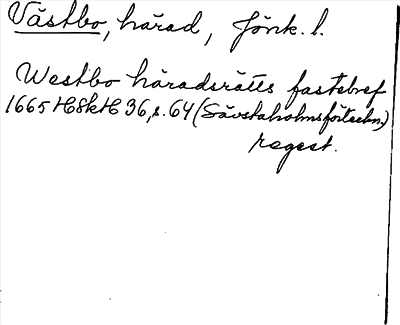 Västbo, härad, Jönk. l.
Westbo häradsrätts fastebref
1665 HSkH 36, s. 64 (Sävstaholmsförteckn.)
regest.